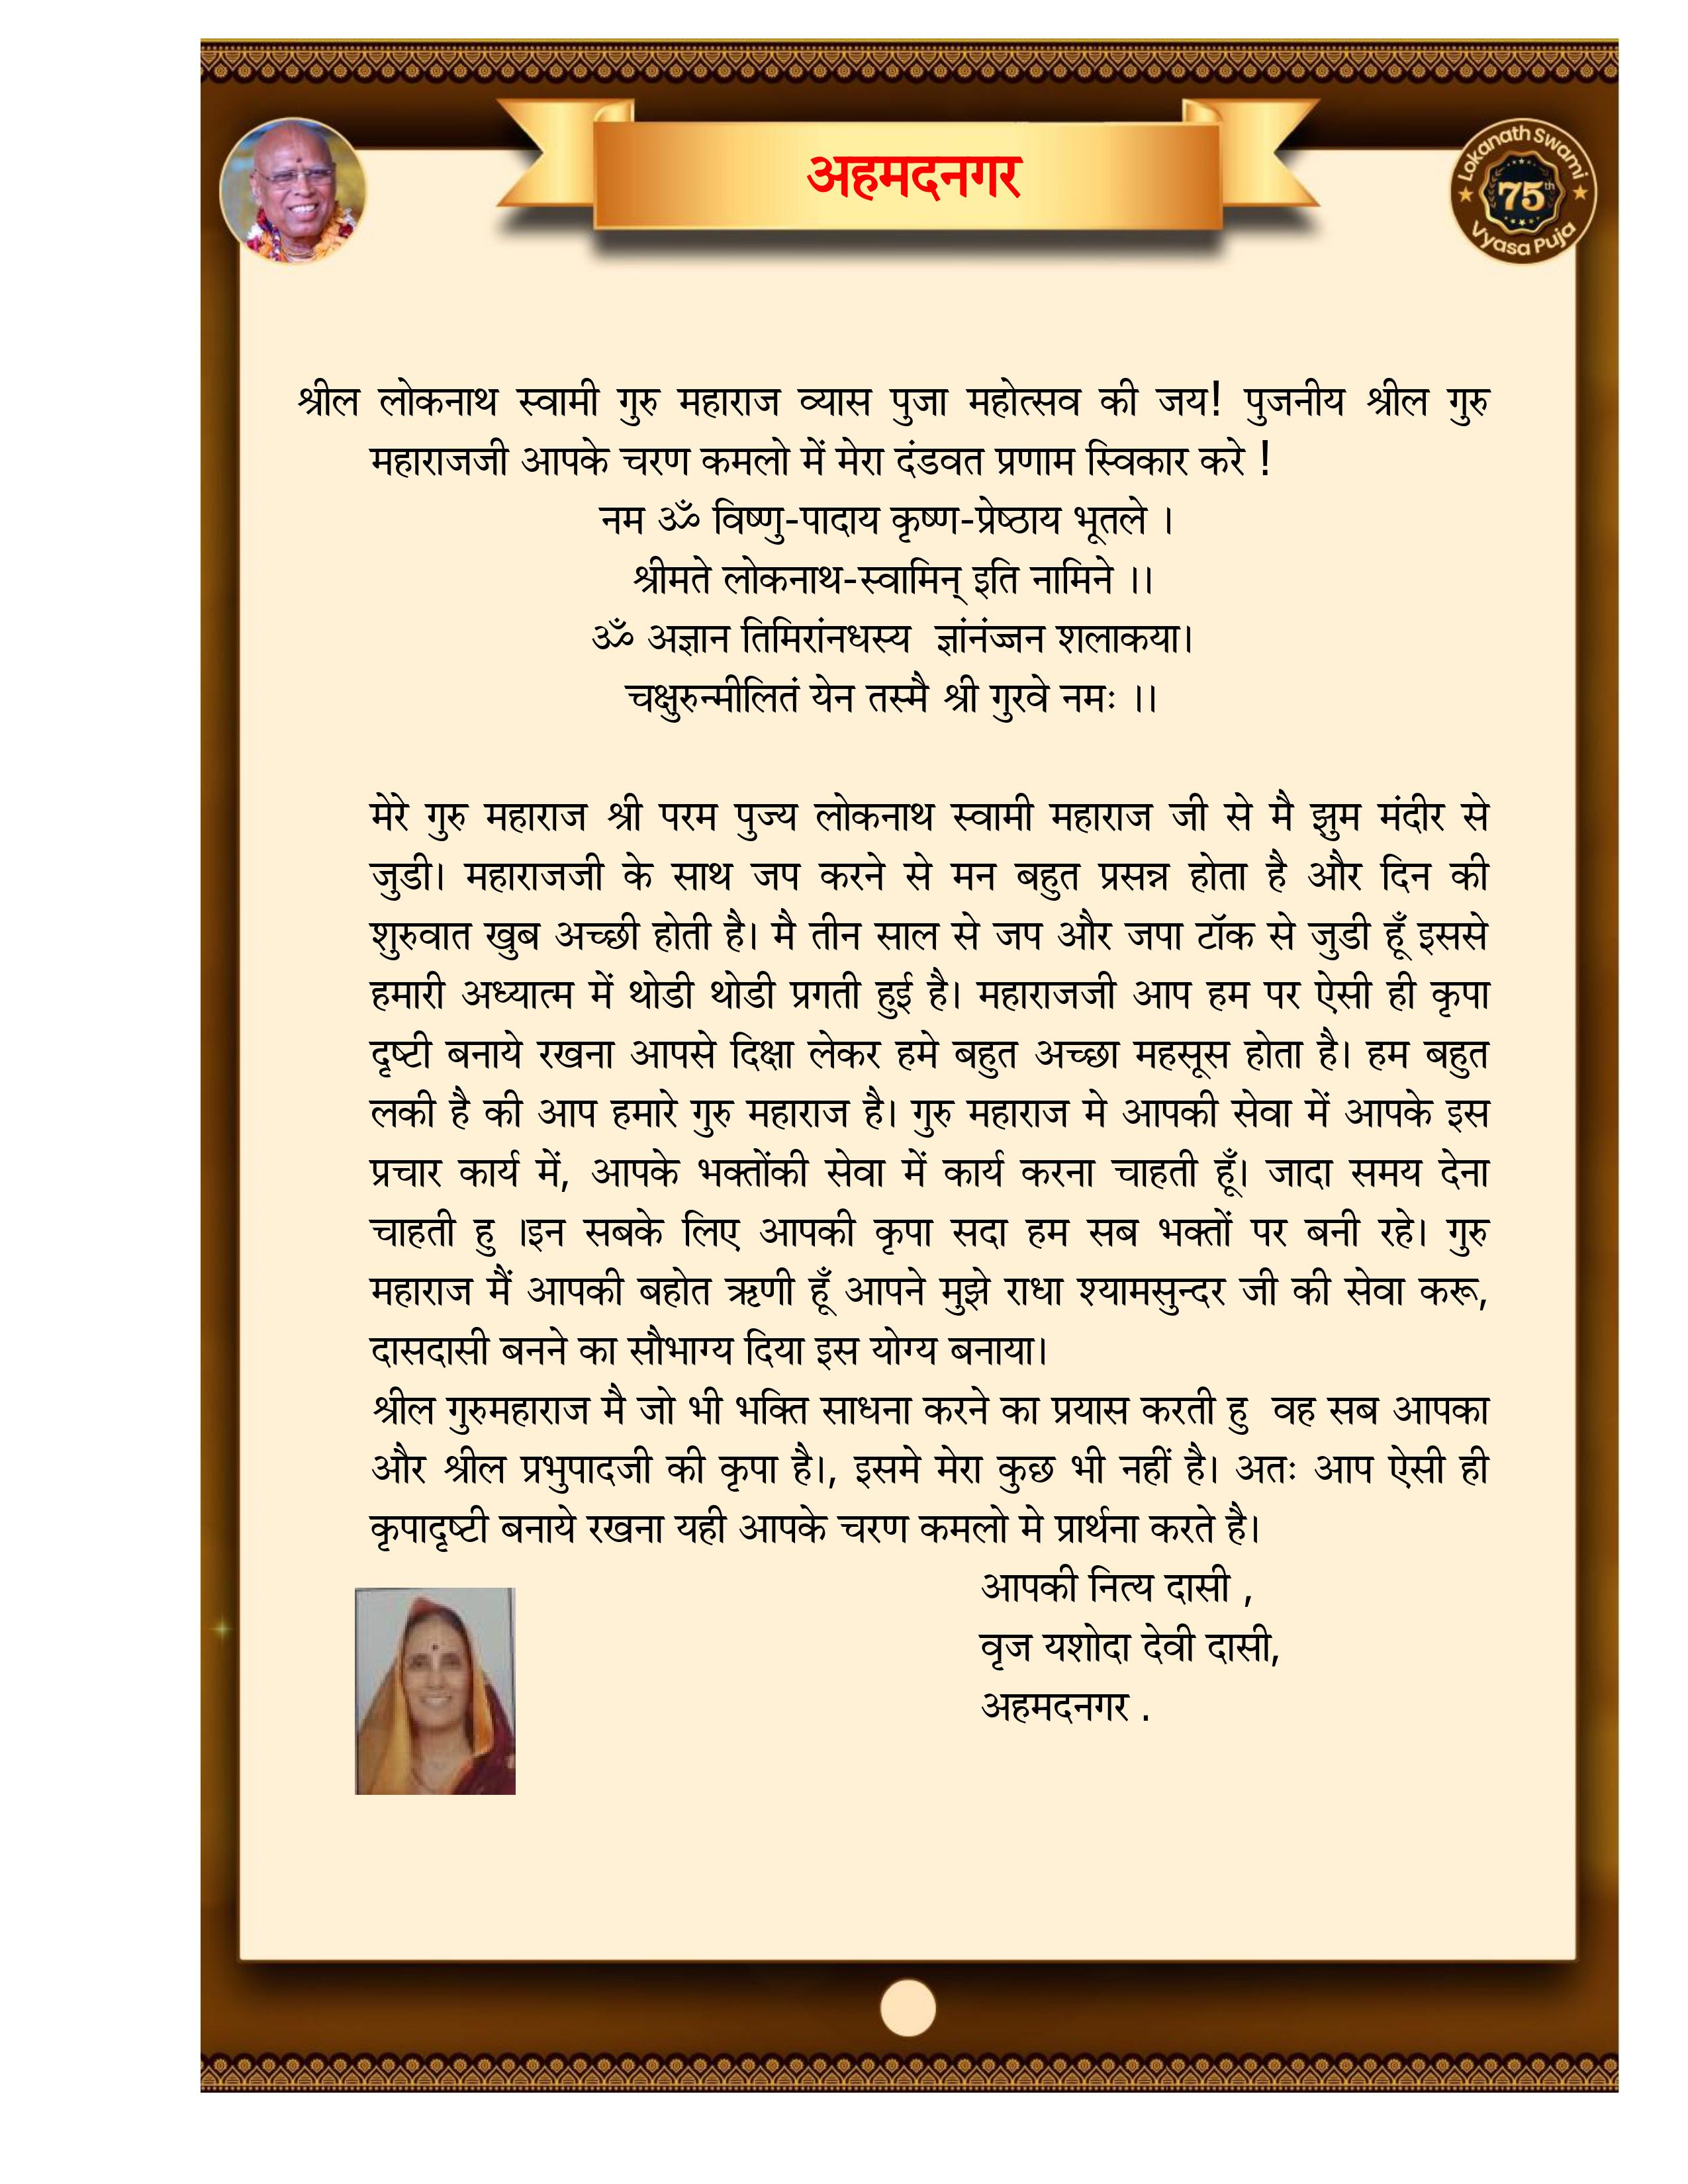 अहमदनगर
Lokanath Swami
75th
Vyasa Puja
श्रील लोकनाथ स्वामी गुरु महाराज व्यास पुजा महोत्सव की जय! पुजनीय श्रील गुरु
महाराजजी आपके चरण कमलो में मेरा दंडवत प्रणाम स्विकार करे !
नम ॐ विष्णु-पादाय कृष्ण-प्रेष्ठाय भूतले ।
श्रीमते लोकनाथ-स्वामिन् इति नामिने ।।
ॐ अज्ञान तिमिरांनधस्य ज्ञांनंज्जन शलाकया।
चक्षुरुन्मीलितं येन तस्मै श्री गुरवे नमः ।।
मेरे गुरु महाराज श्री परम पुज्य लोकनाथ स्वामी महाराज जी से मै झुम मंदीर से
जुडी। महाराजजी के साथ जप करने से मन बहुत प्रसन्न होता है और दिन की
शुरुवात खुब अच्छी होती है। मै तीन साल से जप और जपा टॉक से जुडी हूँ इससे
हमारी अध्यात्म में थोडी थोडी प्रगती हुई है। महाराजजी आप हम पर ऐसी ही कृपा
दृष्टी बनाये रखना आपसे दिक्षा लेकर हमे बहुत अच्छा महसूस होता है। हम बहुत
लकी है की आप हमारे गुरु महाराज है। गुरु महाराज मे आपकी सेवा में आपके इस
प्रचार कार्य में, आपके भक्तोंकी सेवा में कार्य करना चाहती हूँ। जादा समय देना
चाहती हु ।इन सबके लिए आपकी कृपा सदा हम सब भक्तों पर बनी रहे। गुरु
महाराज मैं आपकी बहोत ऋणी हूँ आपने मुझे राधा श्यामसुन्दर जी की सेवा करू,
दासदासी बनने का सौभाग्य दिया इस योग्य बनाया।
श्रील गुरुमहाराज मै जो भी भक्ति साधना करने का प्रयास करती हु वह सब आपका
और श्रील प्रभुपादजी की कृपा है।, इसमे मेरा कुछ भी नहीं है। अतः आप ऐसी ही
कृपादृष्टी बनाये रखना यही आपके चरण कमलो मे प्रार्थना करते है।
आपकी नित्य दासी ,
वृज यशोदा देवी दासी,
अहमदनगर .